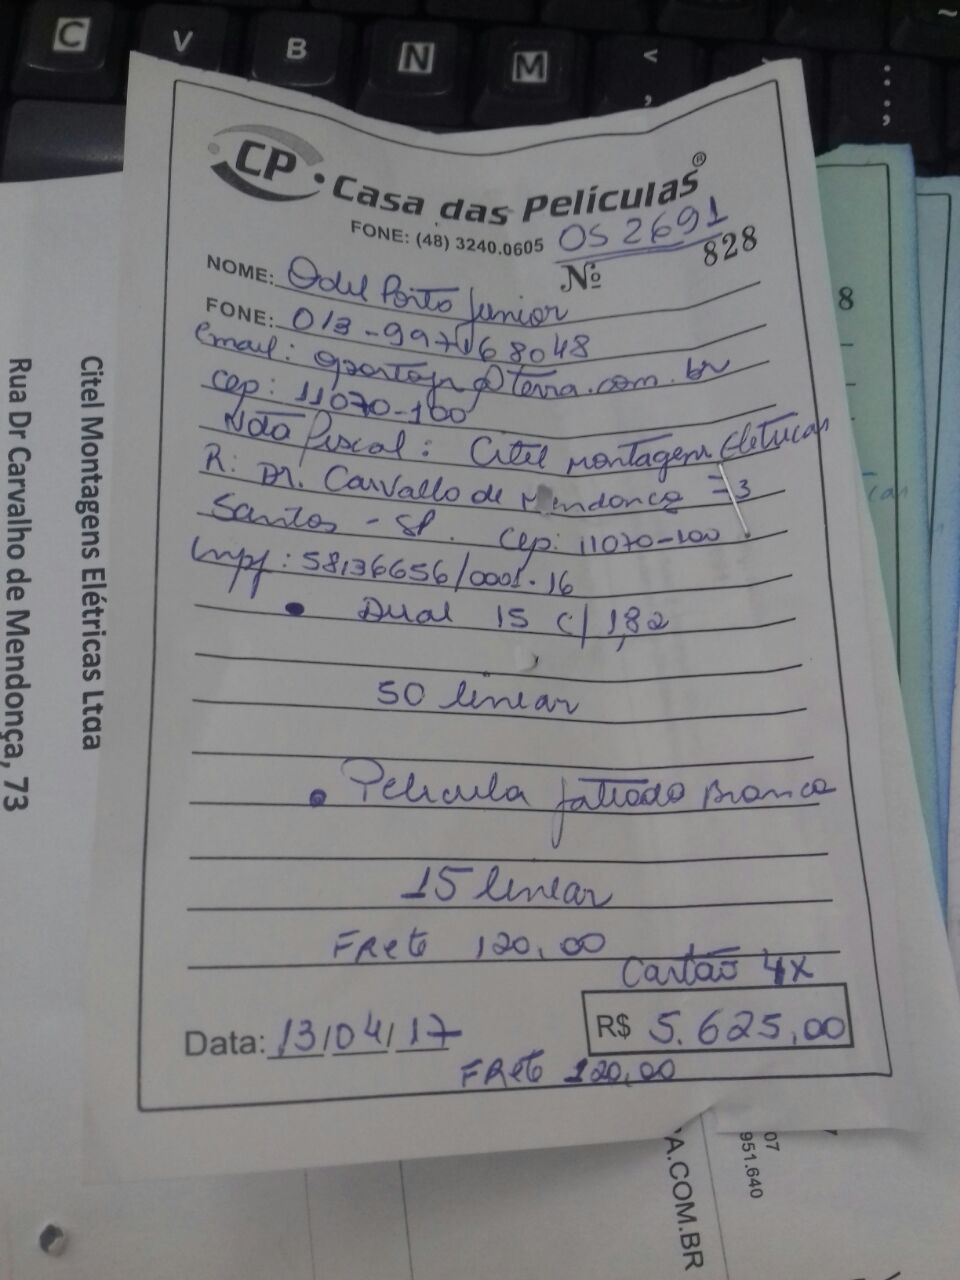 C V B N M < ,
CP Casa das Películas®
FONE: (48) 3240.0605 OS 2691
Nº 828
NOME: Odil Porto Junior
FONE: 013-997768048
email: @terra.com.br
Cep: 11070-100
Nota Fiscal: Citel montagem Eletricas
R: Dr. Carvallo de Mendonca 73
Santos - SP. Cep: 11070-100
Cnpj: 58136656/0001-16
• Dual 15 c/ 1,82
50 linear
• Pelicula Jatiado Branca
15 linear
Frete 120,00
Cartão 4x
Data: 13/04/17 R$ 5.625,00
Frete 120,00
Citel Montagens Elétricas Ltda
Rua Dr Carvalho de Mendonça, 73
8
A.COM.BR
07
951.640